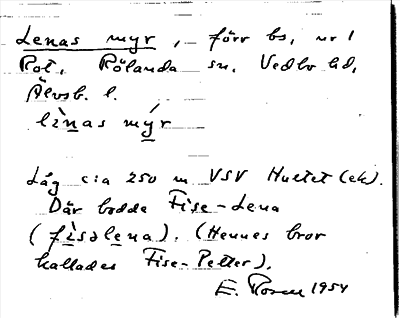 Lenas myr, förr bs, nr 1
Rot, Rölanda sn, Vedbo hd,
Älvsb. l.
lìnas mýr
Låg c:a 250 m VSV Hultet (ek).
Där bodde Fise-Lena
(fìsəlena). (Hennes bror
kallades Fise-Petter).
E. Rosen 1954